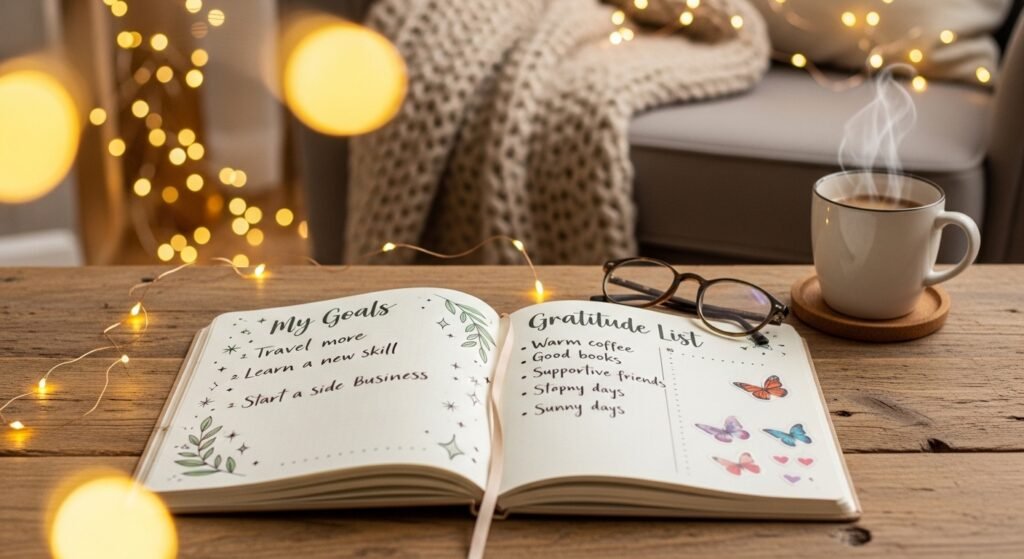 My Goals
2 Travel more
2 Learn a new skill
2 Start a side Business
Gratitude List
• Warm coffee
• Good books
• Supportive friends
• Stopny days
• Sunny days